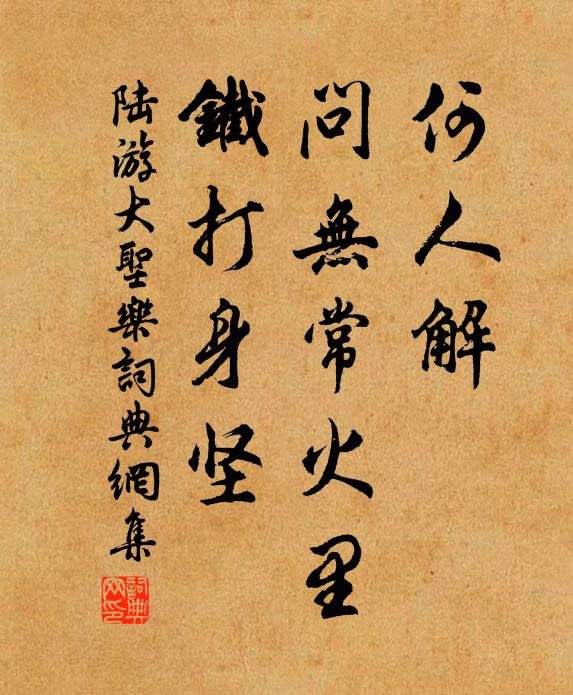 何人解
問無常火里
鐵打身坚
陆游大聖樂詞典網集
詞典
网印